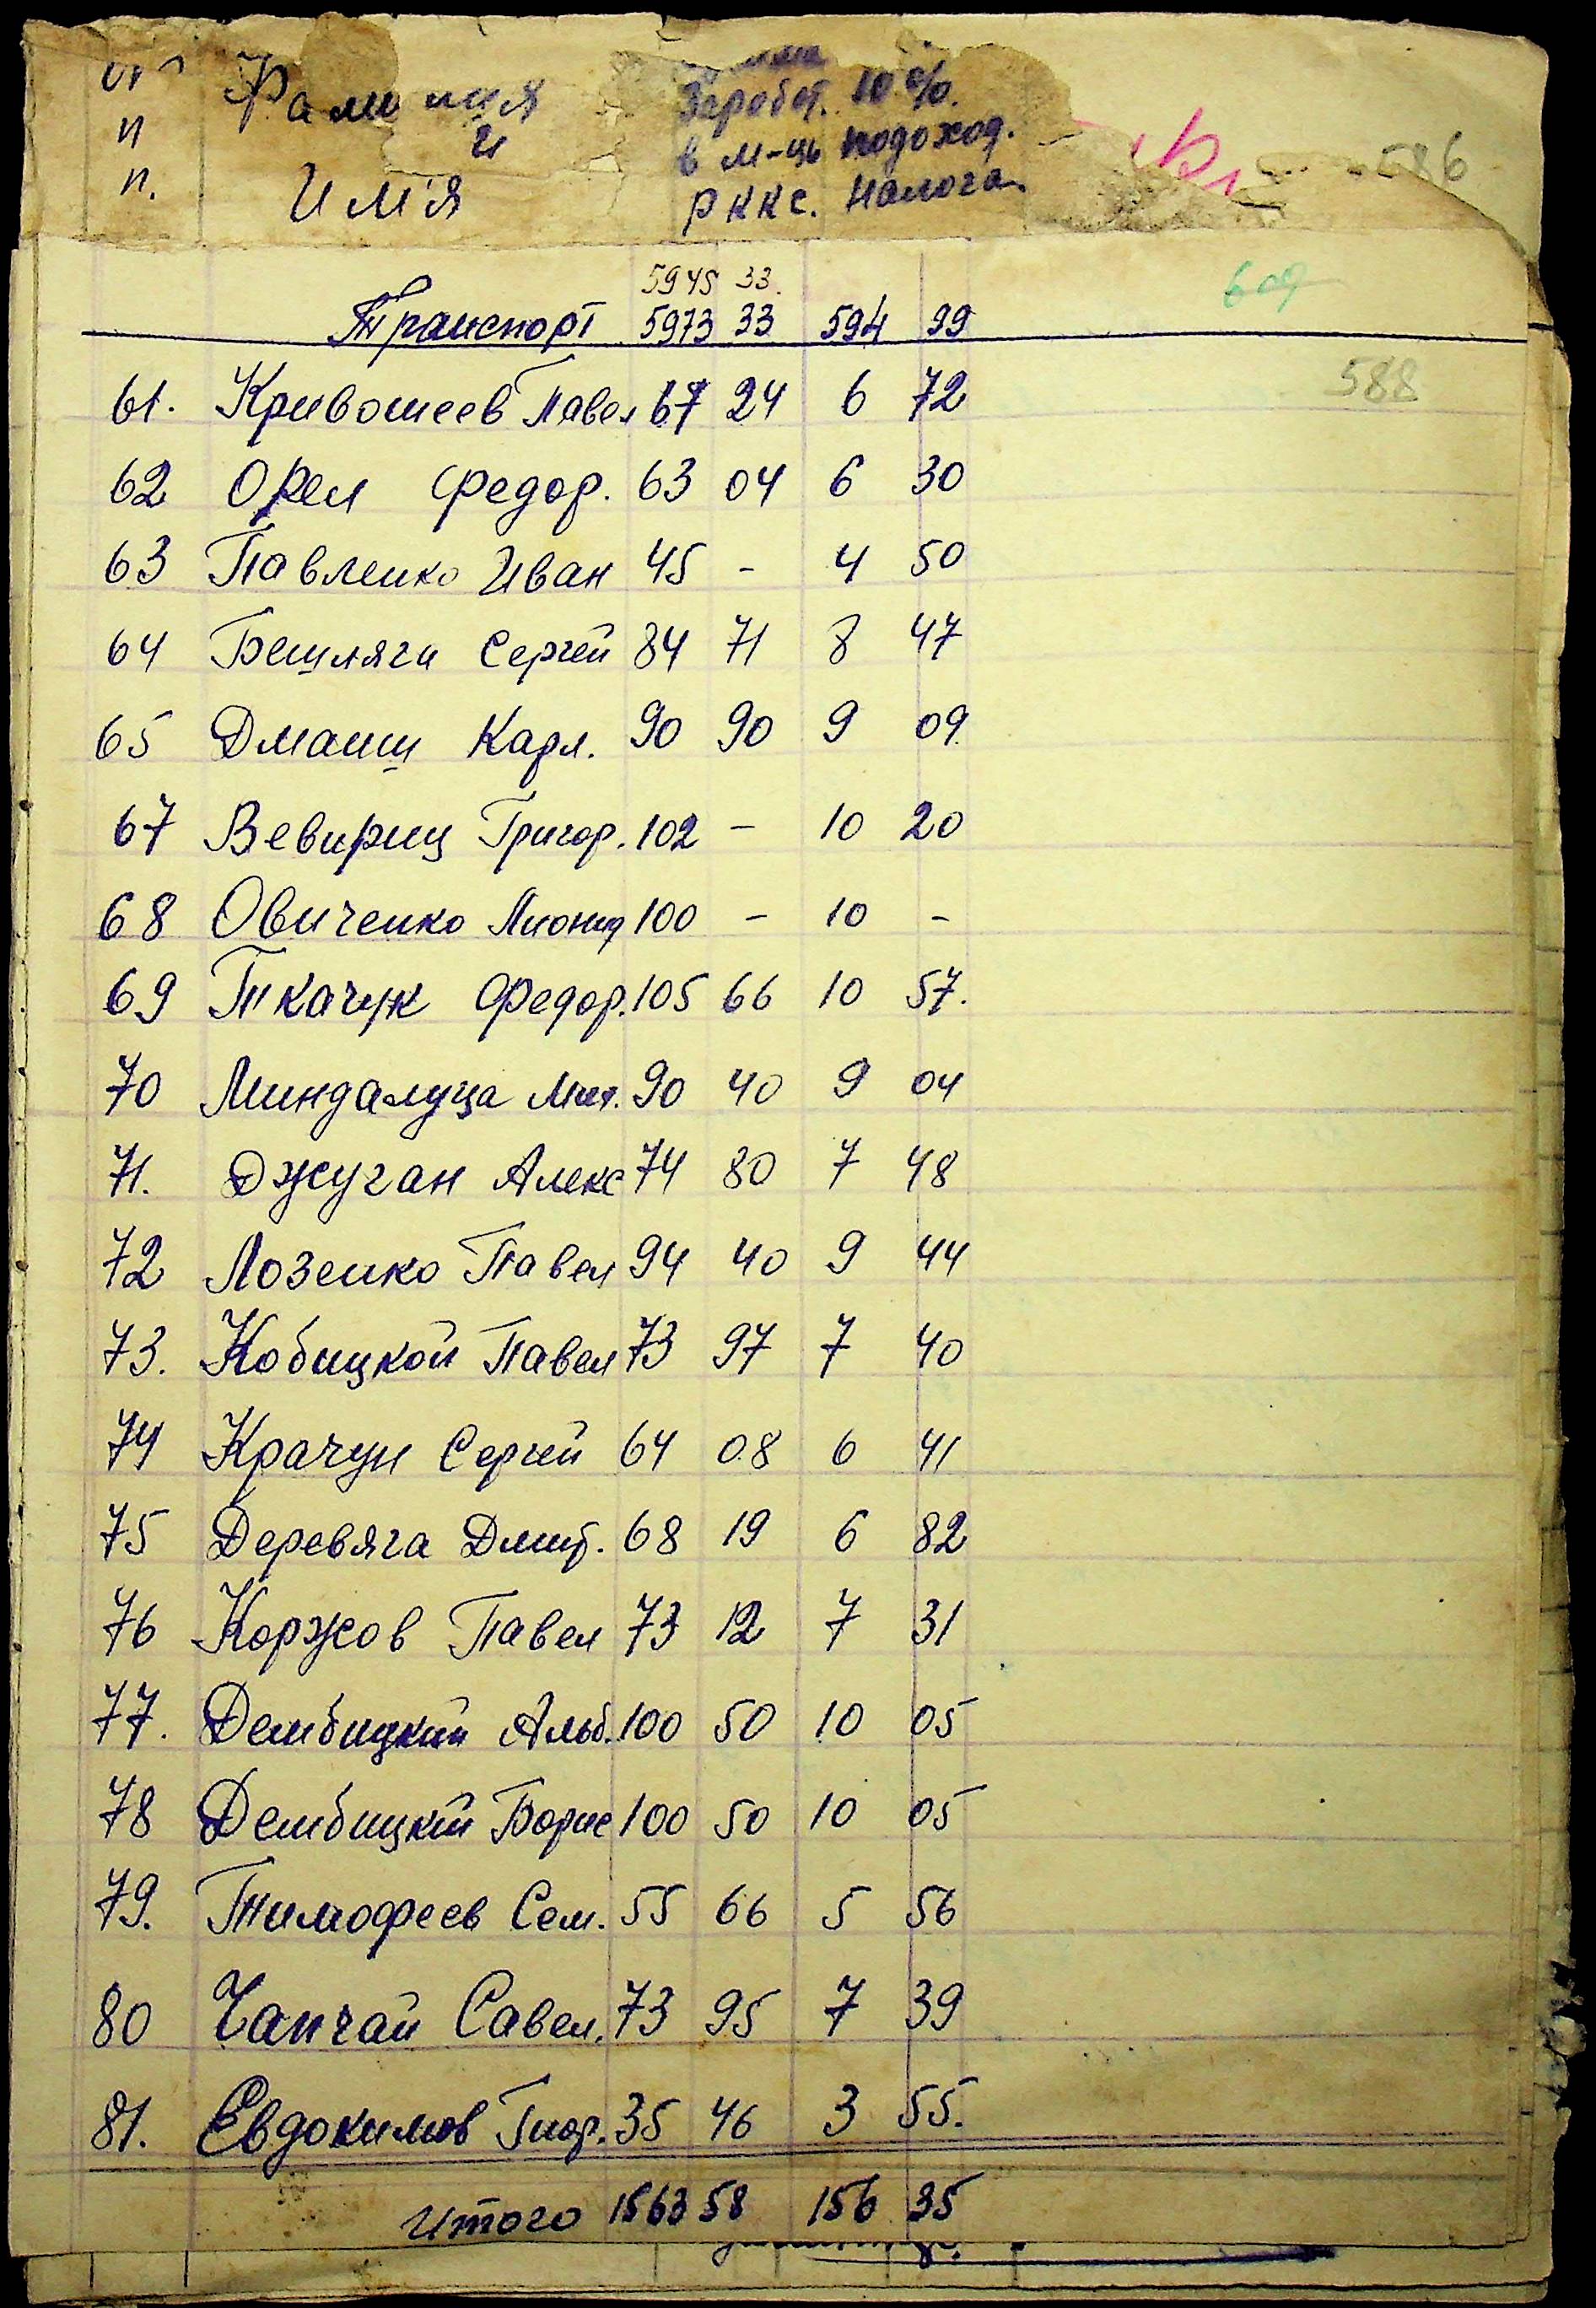 п Фамилия Заработ. 10%
и в м-ць подоход.
п. Имя Р К КС. Налога.
586
5945 33.
Транспорт 5973 33 594 99
609
588
61. Кривошеев Павел 67 24 6 72
62 Орел Федор. 63 04 6 30
63 Павленко Иван 45 - 4 50
64 Бешляги Сергей 84 71 8 47
65 Дманш Карл. 90 90 9 09.
67 Вевириц Григор. 102 - 10 20
68 Овиченко Лионид 100 - 10 -
69 Ткачук Федор. 105 66 10 57.
70 Миндалуца Мих. 90 40 9 04
71. Джуган Алекс 74 80 7 48
72 Лозенко Павел 94 40 9 44
73. Кобицкой Павел 73 97 7 40
74 Крачун Сергей 64 08 6 41
75 Деревяга Дмит. 68 19 6 82
76 Коржов Павел 73 12 7 31
77. Дембицкий Альб. 100 50 10 05
78 Дембицкий Борис 100 50 10 05
79. Тимофеев Сем. 55 66 5 56
80 Чапчай Савел. 73 95 7 39
81. Евдокимов Гиор. 35 46 3 55.
Итого 1563 58 156 35